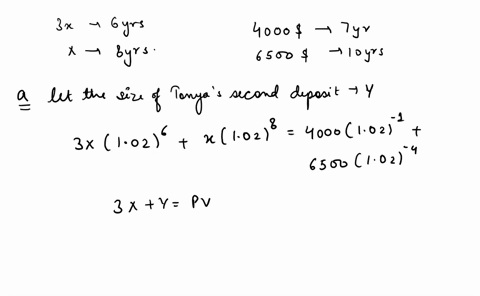 3x → 6yrs
x → 8yrs.
4000$ → 7yr
6500$ → 10yrs
a let the size of Tanya's second deposit → Y
3x(1.02)^6 + x(1.02)^8 = 4000(1.02)^-1 +
6500(1.02)^-4
3x + Y = PV